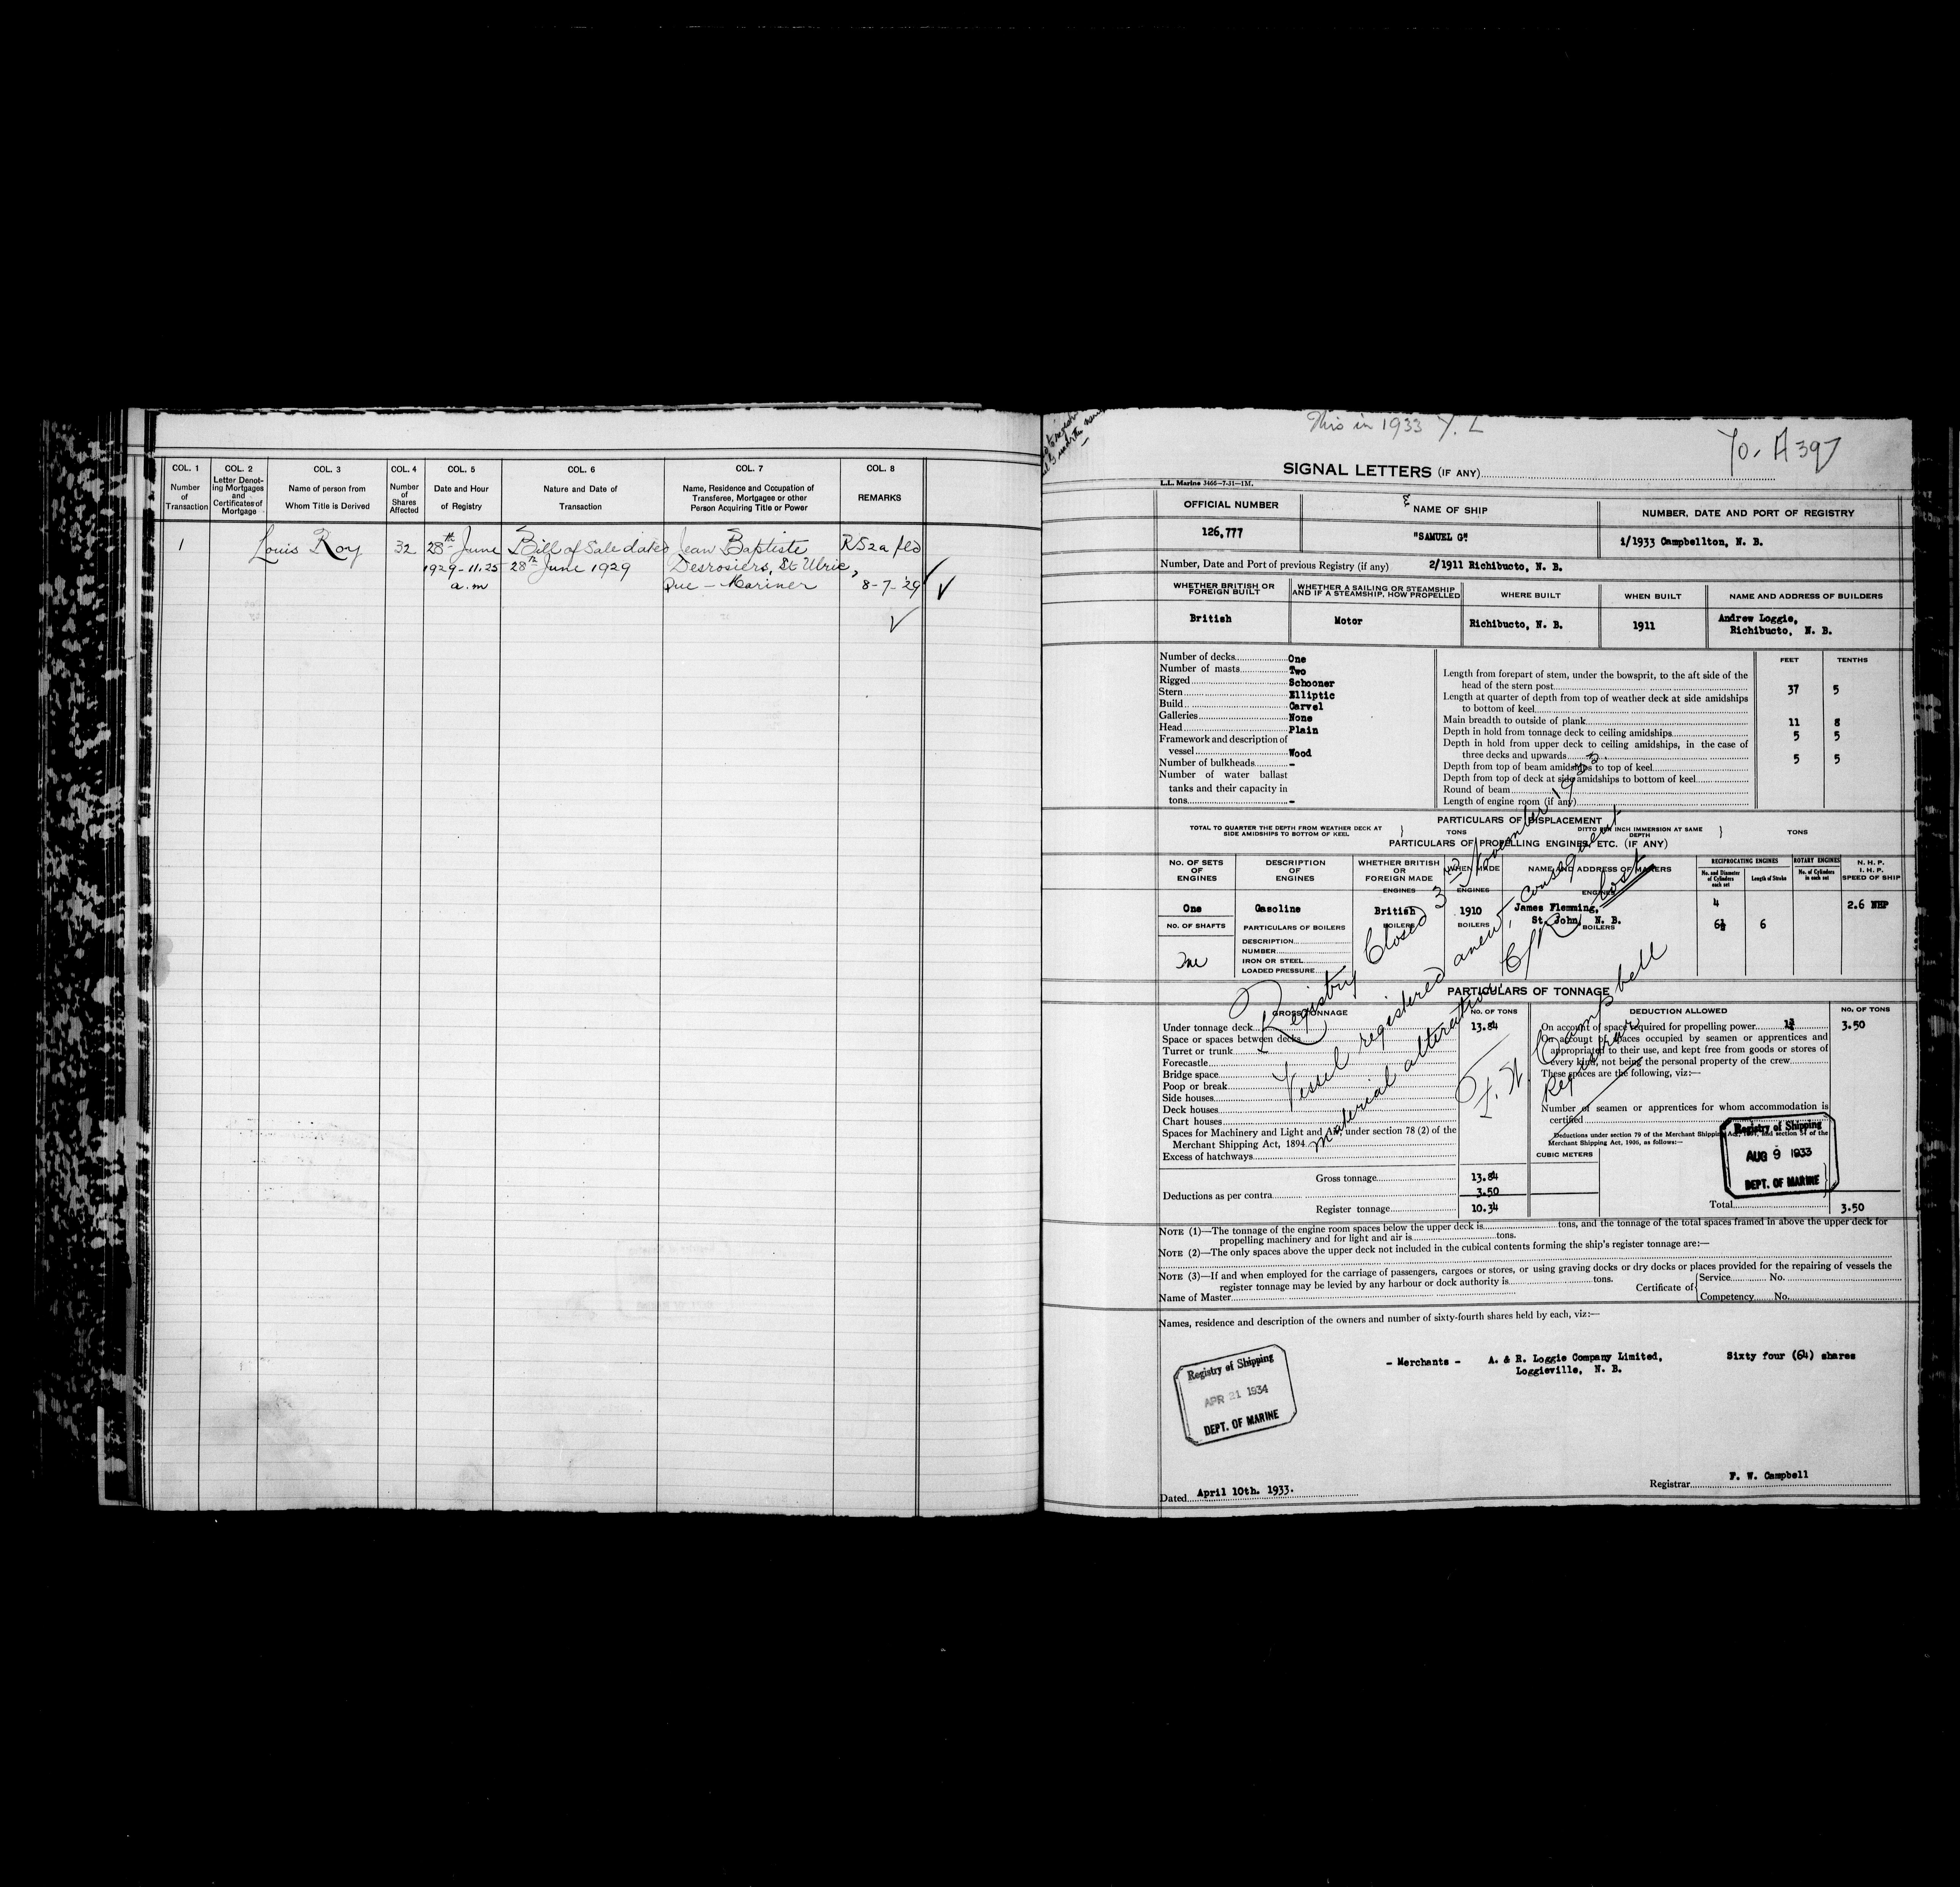 COL. 1
Number
of
Transaction
COL. 2
Letter Denot-
ing Mortgages
and
Certificates of
Mortgage
COL. 3
Name of person from
Whom Title is Derived
COL. 4
Number
of
Shares
Affected
COL. 5
Date and Hour
of Registry
COL. 6
Nature and Date of
Transaction
COL. 7
Name, Residence and Occupation of
Transferee, Mortgagee or other
Person Acquiring Title or Power
COL. 8
REMARKS
1 Louis Roy 32 28th June Bill of Sale dated Jean Baptiste R52a fld
1929-11.25 28th June 1929 Desrosiers, St Ulric,
a.m Que - Mariner 8-7-'29
This in 1933 Y. L
To. A 397
SIGNAL LETTERS (IF ANY)
L.L. Marine 3466-7-31-1M.
OFFICIAL NUMBER NAME OF SHIP NUMBER, DATE AND PORT OF REGISTRY
126,777 "SAMUEL G" 1/1933 Campbellton, N. B.
Number, Date and Port of previous Registry (if any) 2/1911 Richibucto, N. B.
WHETHER BRITISH OR
FOREIGN BUILT
WHETHER A SAILING OR STEAMSHIP
AND IF A STEAMSHIP, HOW PROPELLED
WHERE BUILT WHEN BUILT NAME AND ADDRESS OF BUILDERS
British Motor Richibucto, N. B. 1911 Andrew Loggie,
Richibucto, N. B.
Number of decks One
Number of masts Two
Rigged Schooner
Stern Elliptic
Build Carvel
Galleries None
Head Plain
Framework and description of
vessel Wood
Number of bulkheads -
Number of water ballast
tanks and their capacity in
tons -
FEET TENTHS
Length from forepart of stem, under the bowsprit, to the aft side of the
head of the stern post 37 5
Length at quarter of depth from top of weather deck at side amidships
to bottom of keel
Main breadth to outside of plank 11 8
Depth in hold from tonnage deck to ceiling amidships 5 5
Depth in hold from upper deck to ceiling amidships, in the case of
three decks and upwards 5 5
Depth from top of beam amidships to top of keel
Depth from top of deck at side amidships to bottom of keel
Round of beam
Length of engine room (if any)
PARTICULARS OF DISPLACEMENT
TOTAL TO QUARTER THE DEPTH FROM WEATHER DECK AT
SIDE AMIDSHIPS TO BOTTOM OF KEEL } TONS
DITTO PER INCH IMMERSION AT SAME
DEPTH } TONS
PARTICULARS OF PROPELLING ENGINES, ETC. (IF ANY)
No. OF SETS
OF
ENGINES
DESCRIPTION
OF
ENGINES
WHETHER BRITISH
OR
FOREIGN MADE
WHEN MADE
NAME AND ADDRESS OF MAKERS
RECIPROCATING ENGINES
No. and Diameter
of Cylinders
each set
Length of Stroke
ROTARY ENGINES
No. of Cylinders
in each set
N. H. P.
I. H. P.
SPEED OF SHIP
ENGINES ENGINES ENGINES
One Gasoline British 1910 James Flemming, 4 2.6 NHP
St. John, N. B. 6½ 6
NO. OF SHAFTS PARTICULARS OF BOILERS BOILERS BOILERS BOILERS
One
DESCRIPTION
NUMBER
IRON OR STEEL
LOADED PRESSURE
Registry Closed 3rd November 1933.
Vessel registered anew, consequent
material alteration. C/R Lost
F. W. Campbell
Registrar
PARTICULARS OF TONNAGE
GROSS TONNAGE No. OF TONS
Under tonnage deck 13.84
Space or spaces between decks
Turret or trunk
Forecastle
Bridge space
Poop or break
Side houses
Deck houses
Chart houses
Spaces for Machinery and Light and Air, under section 78 (2) of the
Merchant Shipping Act, 1894
Excess of hatchways
Gross tonnage 13.84
Deductions as per contra 3.50
Register tonnage 10.34
DEDUCTION ALLOWED NO. OF TONS
On account of space required for propelling power 1¾ 3.50
On account of spaces occupied by seamen or apprentices and
appropriated to their use, and kept free from goods or stores of
every kind, not being the personal property of the crew
These spaces are the following, viz:—
Number of seamen or apprentices for whom accommodation is
certified
Deductions under section 79 of the Merchant Shipping Act, 1894, and section 54 of the
Merchant Shipping Act, 1906, as follows:—
CUBIC METERS
Registry of Shipping
AUG 9 1933
DEPT. OF MARINE
Total 3.50
NOTE (1)—The tonnage of the engine room spaces below the upper deck is tons, and the tonnage of the total spaces framed in above the upper deck for
propelling machinery and for light and air is tons.
NOTE (2)—The only spaces above the upper deck not included in the cubical contents forming the ship's register tonnage are:—
NOTE (3)—If and when employed for the carriage of passengers, cargoes or stores, or using graving docks or dry docks or places provided for the repairing of vessels the
register tonnage may be levied by any harbour or dock authority is tons.
Name of Master
Certificate of { Service No.
Competency No.
Names, residence and description of the owners and number of sixty-fourth shares held by each, viz:—
- Merchants - A. & R. Loggie Company Limited, Sixty four (64) shares
Loggieville, N. B.
Registry of Shipping
APR 21 1934
DEPT. OF MARINE
Dated April 10th. 1933.
F. W. Campbell
Registrar